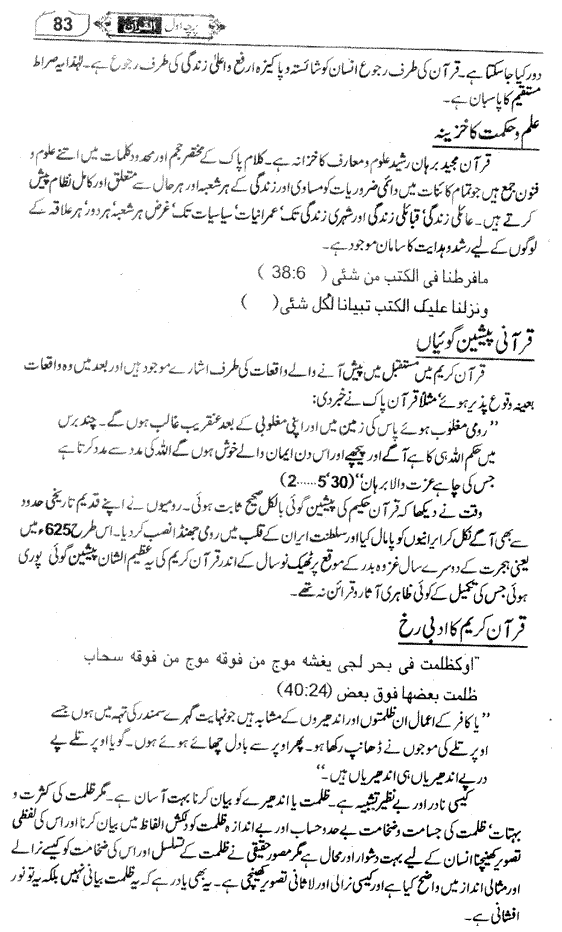 پرچہ اول القرآن 83
دور کیا جا سکتا ہے۔ قرآن کی طرف رجوع انسان کو شائستہ و پاکیزہ ارفع و اعلیٰ زندگی کی طرف رجوع ہے۔ لہٰذا یہ صراط
مستقیم کا پاسبان ہے۔
علم و حکمت کا خزینہ
قرآن مجید برہان رشید علوم و معارف کا خزانہ ہے۔ کلام پاک کے مختصر حجم اور محدود کلمات میں اتنے علوم و
فنون جمع ہیں جو تمام کائنات میں دائمی ضروریات کو مساوی اور زندگی کے ہر شعبہ اور ہر حال سے متعلق اور کامل نظام پیش
کرتے ہیں۔ عائلی زندگی‘ قبائلی زندگی اور شہری زندگی تک‘ عمرانیات‘ سیاسیات تک‘ غرض ہر شعبہ‘ ہر دور‘ ہر علاقہ کے
لوگوں کے لیے رشد و ہدایت کا سامان موجود ہے۔
مافرطنا فی الکتب من شئی ( 38:6 )
ونزلنا علیک الکتب تبیانا لکل شئی( )
قرآنی پیشین گوئیاں
قرآن کریم میں مستقبل میں پیش آنے والے واقعات کی طرف اشارے موجود ہیں اور بعد میں وہ واقعات
بعینہ وقوع پذیر ہوئے‘ مثلاً قرآن پاک نے خبر دی:
’’رومی مغلوب ہوئے پاس کی زمین میں اور اپنی مغلوبی کے بعد عنقریب غالب ہوں گے۔ چند برس
میں حکم اللہ ہی کا ہے آگے اور پیچھے اور اس دن ایمان والے خوش ہوں گے اللہ کی مدد سے مدد کرتا ہے
جس کی چاہے عزت والا برہان‘‘ (30‘5.....2)
وقت نے دیکھا کہ قرآن حکیم کی پیشین گوئی بالکل صحیح ثابت ہوئی۔ رومیوں نے اپنے قدیم تاریخی حدود
سے بھی آگے نکل کر ایرانیوں کو پامال کیا اور سلطنت ایران کے قلب میں رومی جھنڈا نصب کر دیا۔ اس طرح 625ء میں
یعنی ہجرت کے دوسرے سال غزوہ بدر کے موقع پر ٹھیک نو سال کے اندر قرآن کریم کی یہ عظیم الشان پیشین گوئی پوری
ہوئی جس کی تکمیل کے کوئی ظاہری آثار و قرائن نہ تھے۔
قرآن کریم کا ادبی رخ
"اوکظلمت فی بحر لجی یغشہ موج من فوقہ موج من فوقہ سحاب
ظلمت بعضھا فوق بعض (40:24)
’’یا کافر کے اعمال ان ظلمتوں اور اندھیروں کے مشابہ ہیں جو نہایت گہرے سمندر کی تہہ میں ہوں جسے
اوپر تلے کی موجوں نے ڈھانپ رکھا ہو۔ پھر اوپر سے بادل چھائے ہوئے ہوں۔ گویا اوپر تلے پے
در پے اندھیریاں ہی اندھیریاں ہیں۔‘‘
کیسی نادر اور بے نظیر تشبیہ ہے۔ ظلمت یا اندھیرے کو بیان کرنا بہت آسان ہے۔ مگر ظلمت کی کثرت و
بہتات‘ ظلمت کی جسامت و ضخامت بے حد و حساب اور بے اندازہ ظلمت کو دلکش الفاظ میں بیان کرنا اور اس کی لفظی
تصویر کھینچنا انسان کے لیے بہت دشوار اور محال ہے مگر مصور حقیقی نے ظلمت کے تسلسل اور اس کی ضخامت کو کیسے نرالے
اور مثالی انداز میں واضح کیا ہے اور کیسی نرالی اور لاثانی تصویر کھینچی ہے۔ یہ بھی یاد رہے کہ یہ ظلمت بیانی نہیں بلکہ یہ تو نور
افشانی ہے۔